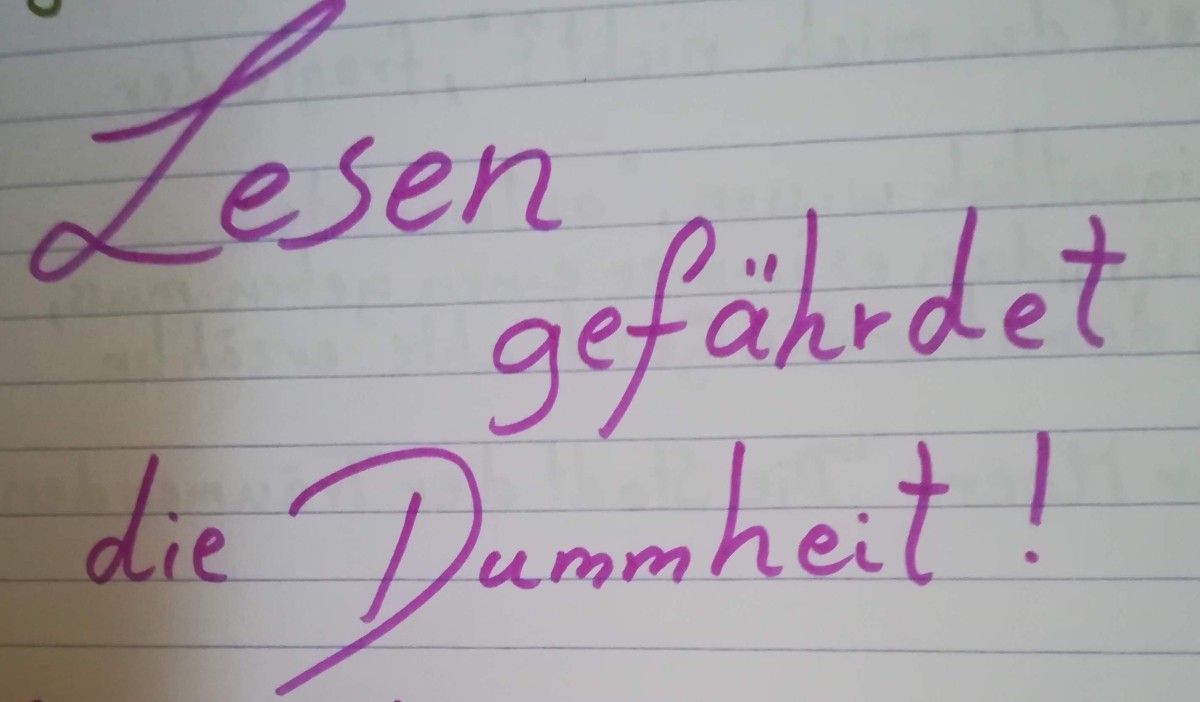 Lesen
gefährdet
die Dummheit!